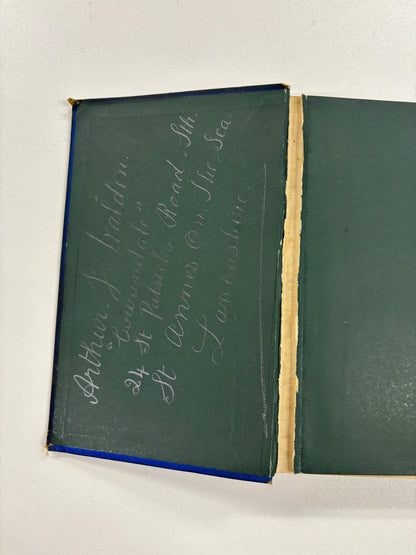 Arthur J. Waldon.
24 St Patricks Road. Sth.
St Annes On The Sea.
Lancashire.